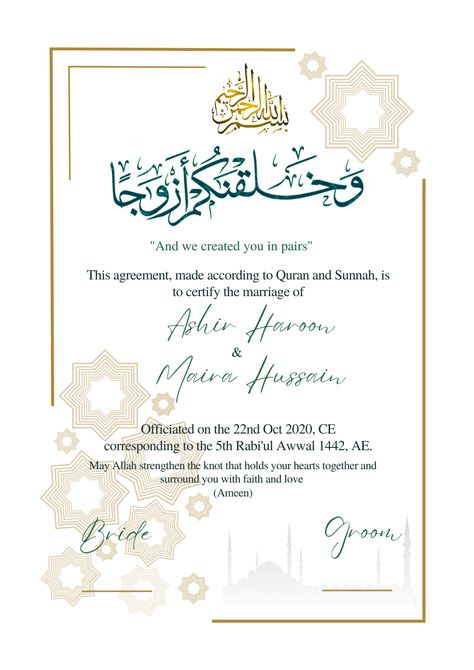 بسم الله الرحمن الرحيم
وَخَلَقْنَكُمْ أَزْوَجًا
"And we created you in pairs"
This agreement, made according to Quran and Sunnah, is
to certify the marriage of
Ashir Haroon
&
Maira Hussain
Officiated on the 22nd Oct 2020, CE
corresponding to the 5th Rabi'ul Awwal 1442, AE.
May Allah strengthen the knot that holds your hearts together and
surround you with faith and love
(Ameen)
Bride Groom